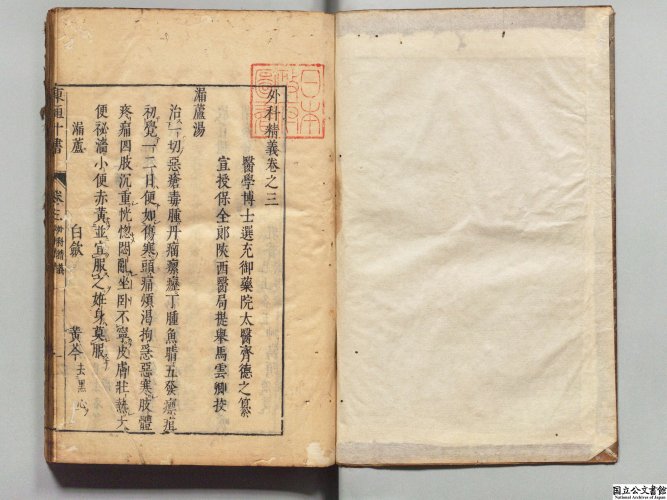 外科精義卷之三
醫學博士選充御藥院太醫齊德之纂
宣授保全郎陝西醫局提舉馬雲卿挍
漏蘆湯
治一切惡瘡毒腫丹瘤瘰癧丁腫魚睛五發癰疽
初覺一二日便如傷寒頭痛煩渴拘急惡寒肢體
疼痛四肢沉重恍惚悶亂坐卧不寧皮膚壯熱大
便祕濇小便赤黃並宜服之妊身莫服
漏蘆 白歛 黃芩去黑心
東垣十書 卷三 外科精義 一
日本
國立公文書館
National Archives of Japan